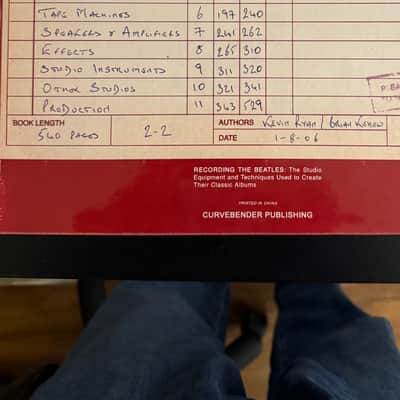 TAPE MACHINES 6 197 240
SPEAKERS & AMPLIFIERS 7 241 262
EFFECTS 8 265 310
STUDIO INSTRUMENTS 9 311 320
OTHER STUDIOS 10 321 341
PRODUCTION 11 343 529
BOOK LENGTH 540 PAGES 2-2 AUTHORS KEVIN RYAN / BRIAN KEHEW
DATE 1-8-06
RECORDING THE BEATLES: The Studio
Equipment and Techniques Used to Create
Their Classic Albums
PRINTED IN CHINA
CURVEBENDER PUBLISHING